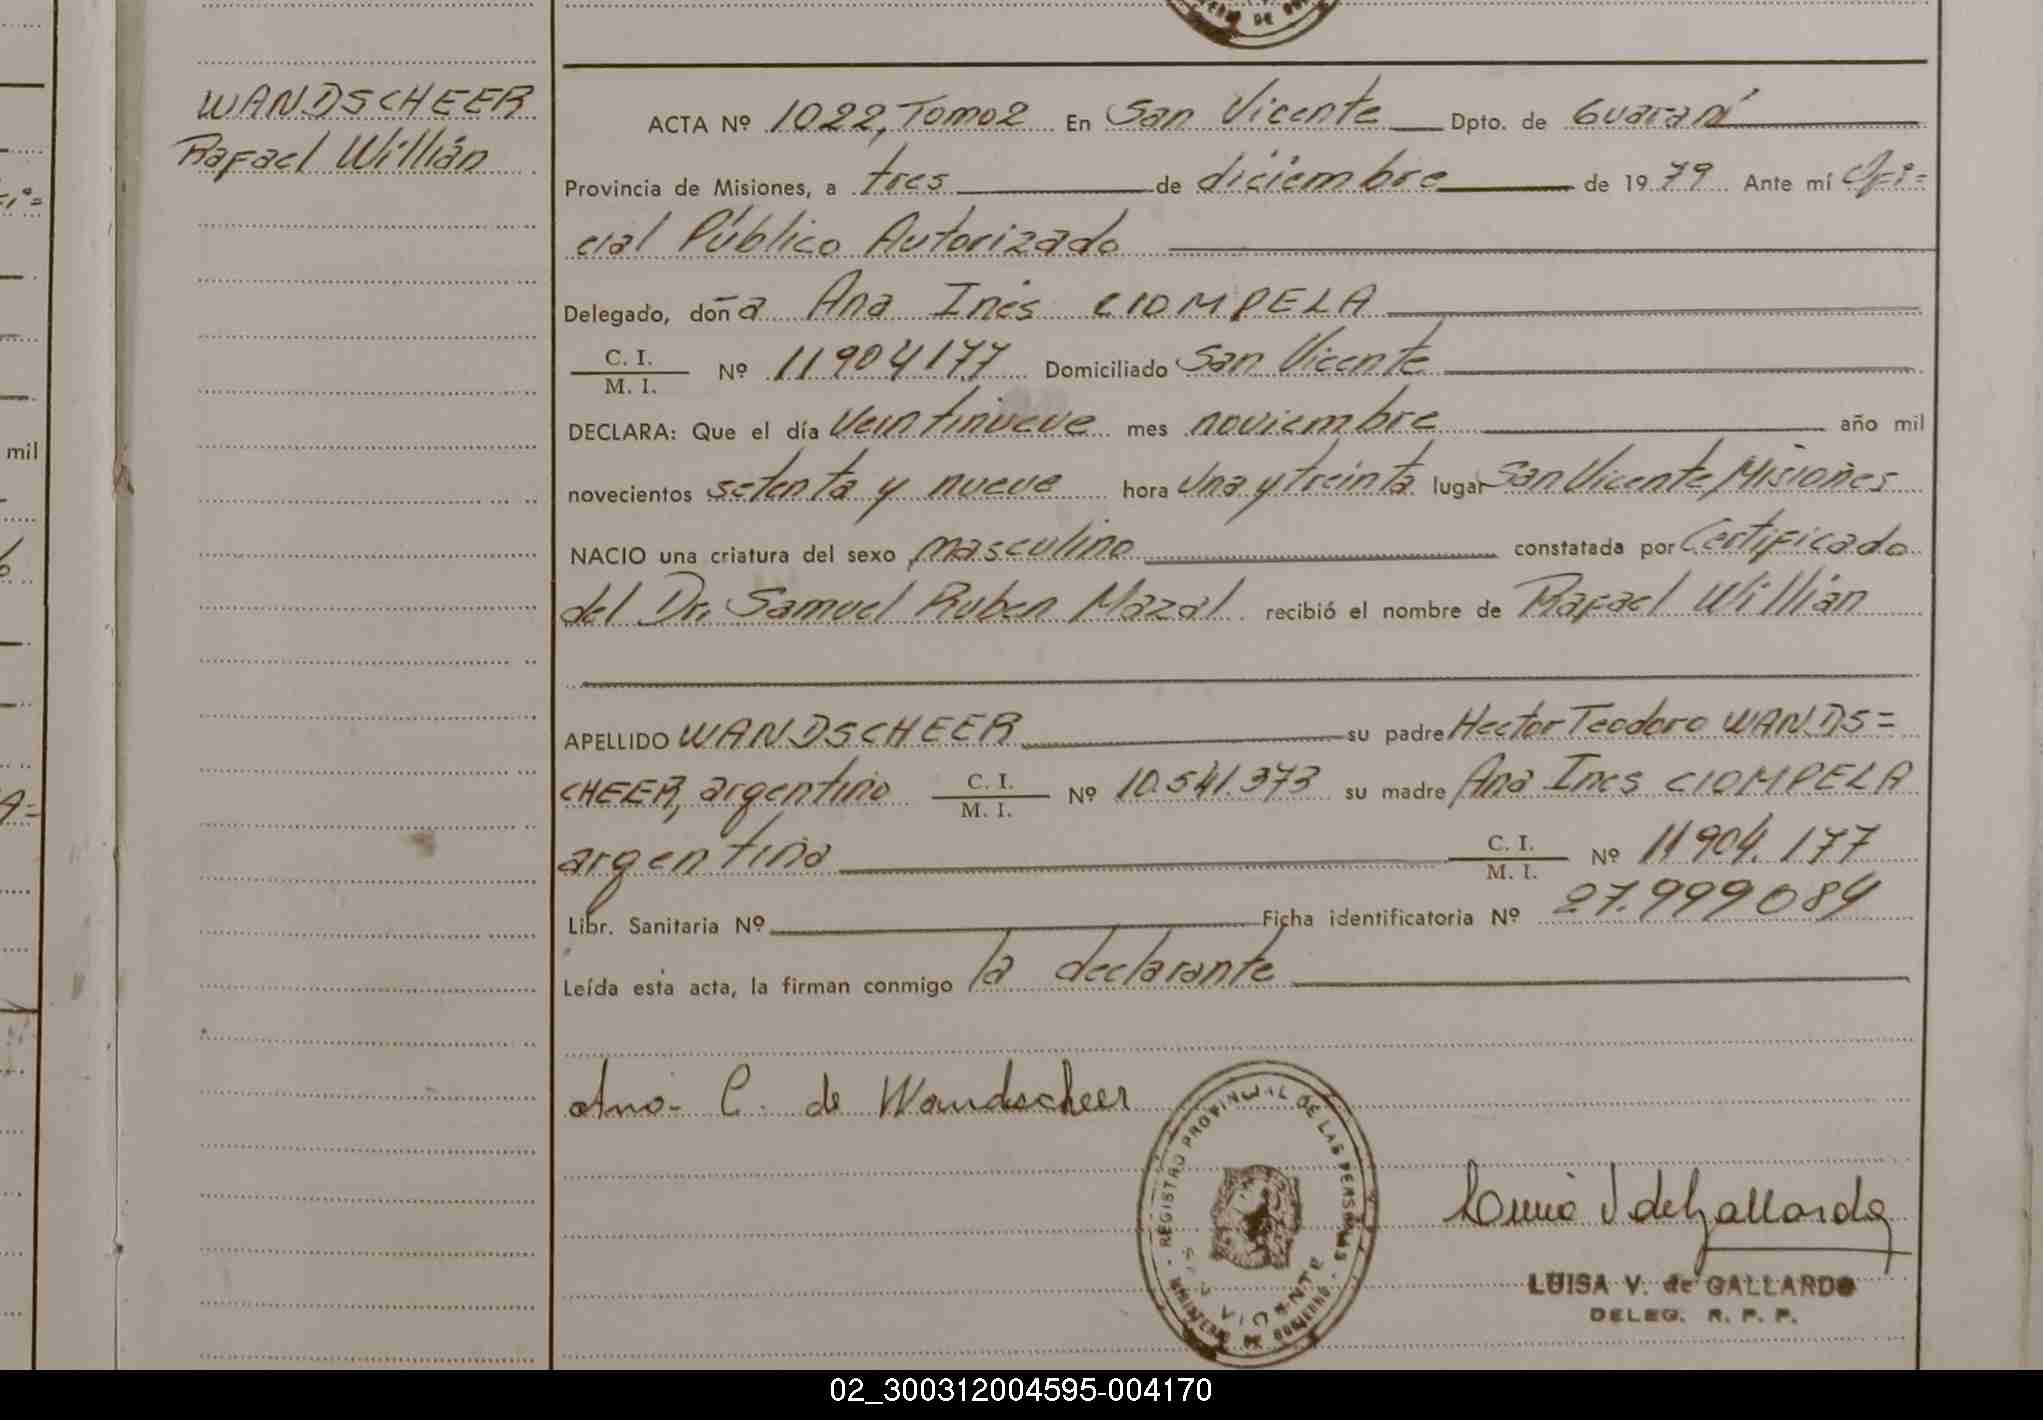 WANDSCHEER
Rafael Willián
ACTA Nº 1022, Tomo 2 En San Vicente Dpto. de Guaraní
Provincia de Misiones, a tres de diciembre de 1979 Ante mí Ofi=
cial Público Autorizado
Delegado, doña Ana Inés CIOMPELA
C. I.
M. I. Nº 11904177 Domiciliado San Vicente
DECLARA: Que el día Veintinueve mes noviembre año mil
novecientos setenta y nueve hora Una y treinta lugar San Vicente, Misiones
NACIO una criatura del sexo masculino constatada por Certificado
del Dr. Samuel Ruben Mazal recibió el nombre de Rafael Willián
APELLIDO WANDSCHEER su padre Hector Teodoro WANDS=
CHEER, argentino C. I.
M. I. Nº 10.541.373 su madre Ana Ines CIOMPELA
argentina C. I.
M. I. Nº 11904.177
Libr. Sanitaria Nº Ficha identificatoria Nº 27.999084
Leída esta acta, la firman conmigo la declarante
Ana C. de Wandscheer
REGISTRO PROVINCIAL DE LAS PERSONAS
SAN VICENTE
MINISTERIO DE GOBIERNO
LUISA V. de GALLARDO
DELEG. R. P. P.
mil
02_300312004595-004170